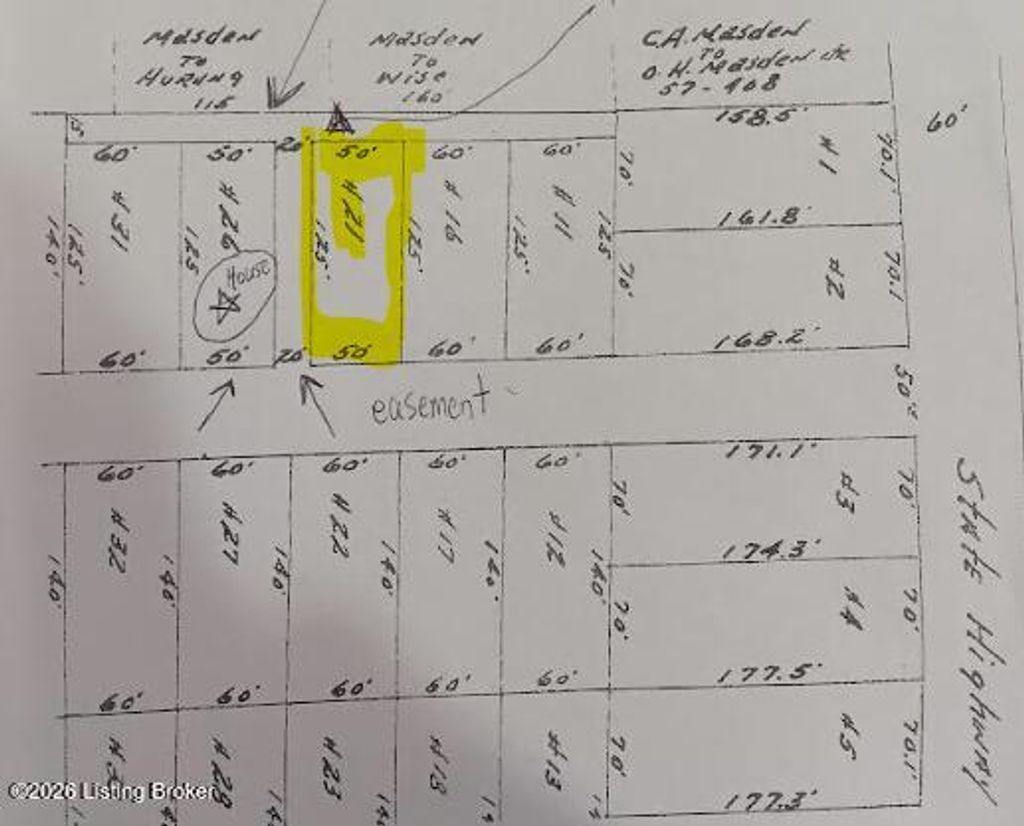 Masden
To
Hurung
115
Masden
To
Wise
160'
C.A. Masden
To
O.H. Masden
57-408
15'
158.5'
60'
60'
50'
20'
50'
60'
60'
70'
#1
70.1'
#31
#26
#21
#16
#11
161.8'
140'
125'
125
125'
125'
125'
125
70'
#2
70.1
House
168.2'
60'
50'
20'
50'
60'
60'
easement
50'
171.1'
60'
60'
60'
60'
60'
70'
#3
70'
#32
#27
#22
#17
#12
174.3'
140'
140'
140'
140'
140'
140'
70'
#4
70'
State Highway
60'
60'
60'
60'
60'
177.5'
#28
#23
#18
#13
70'
#5
70.1'
177.3'
©2026 Listing Broker